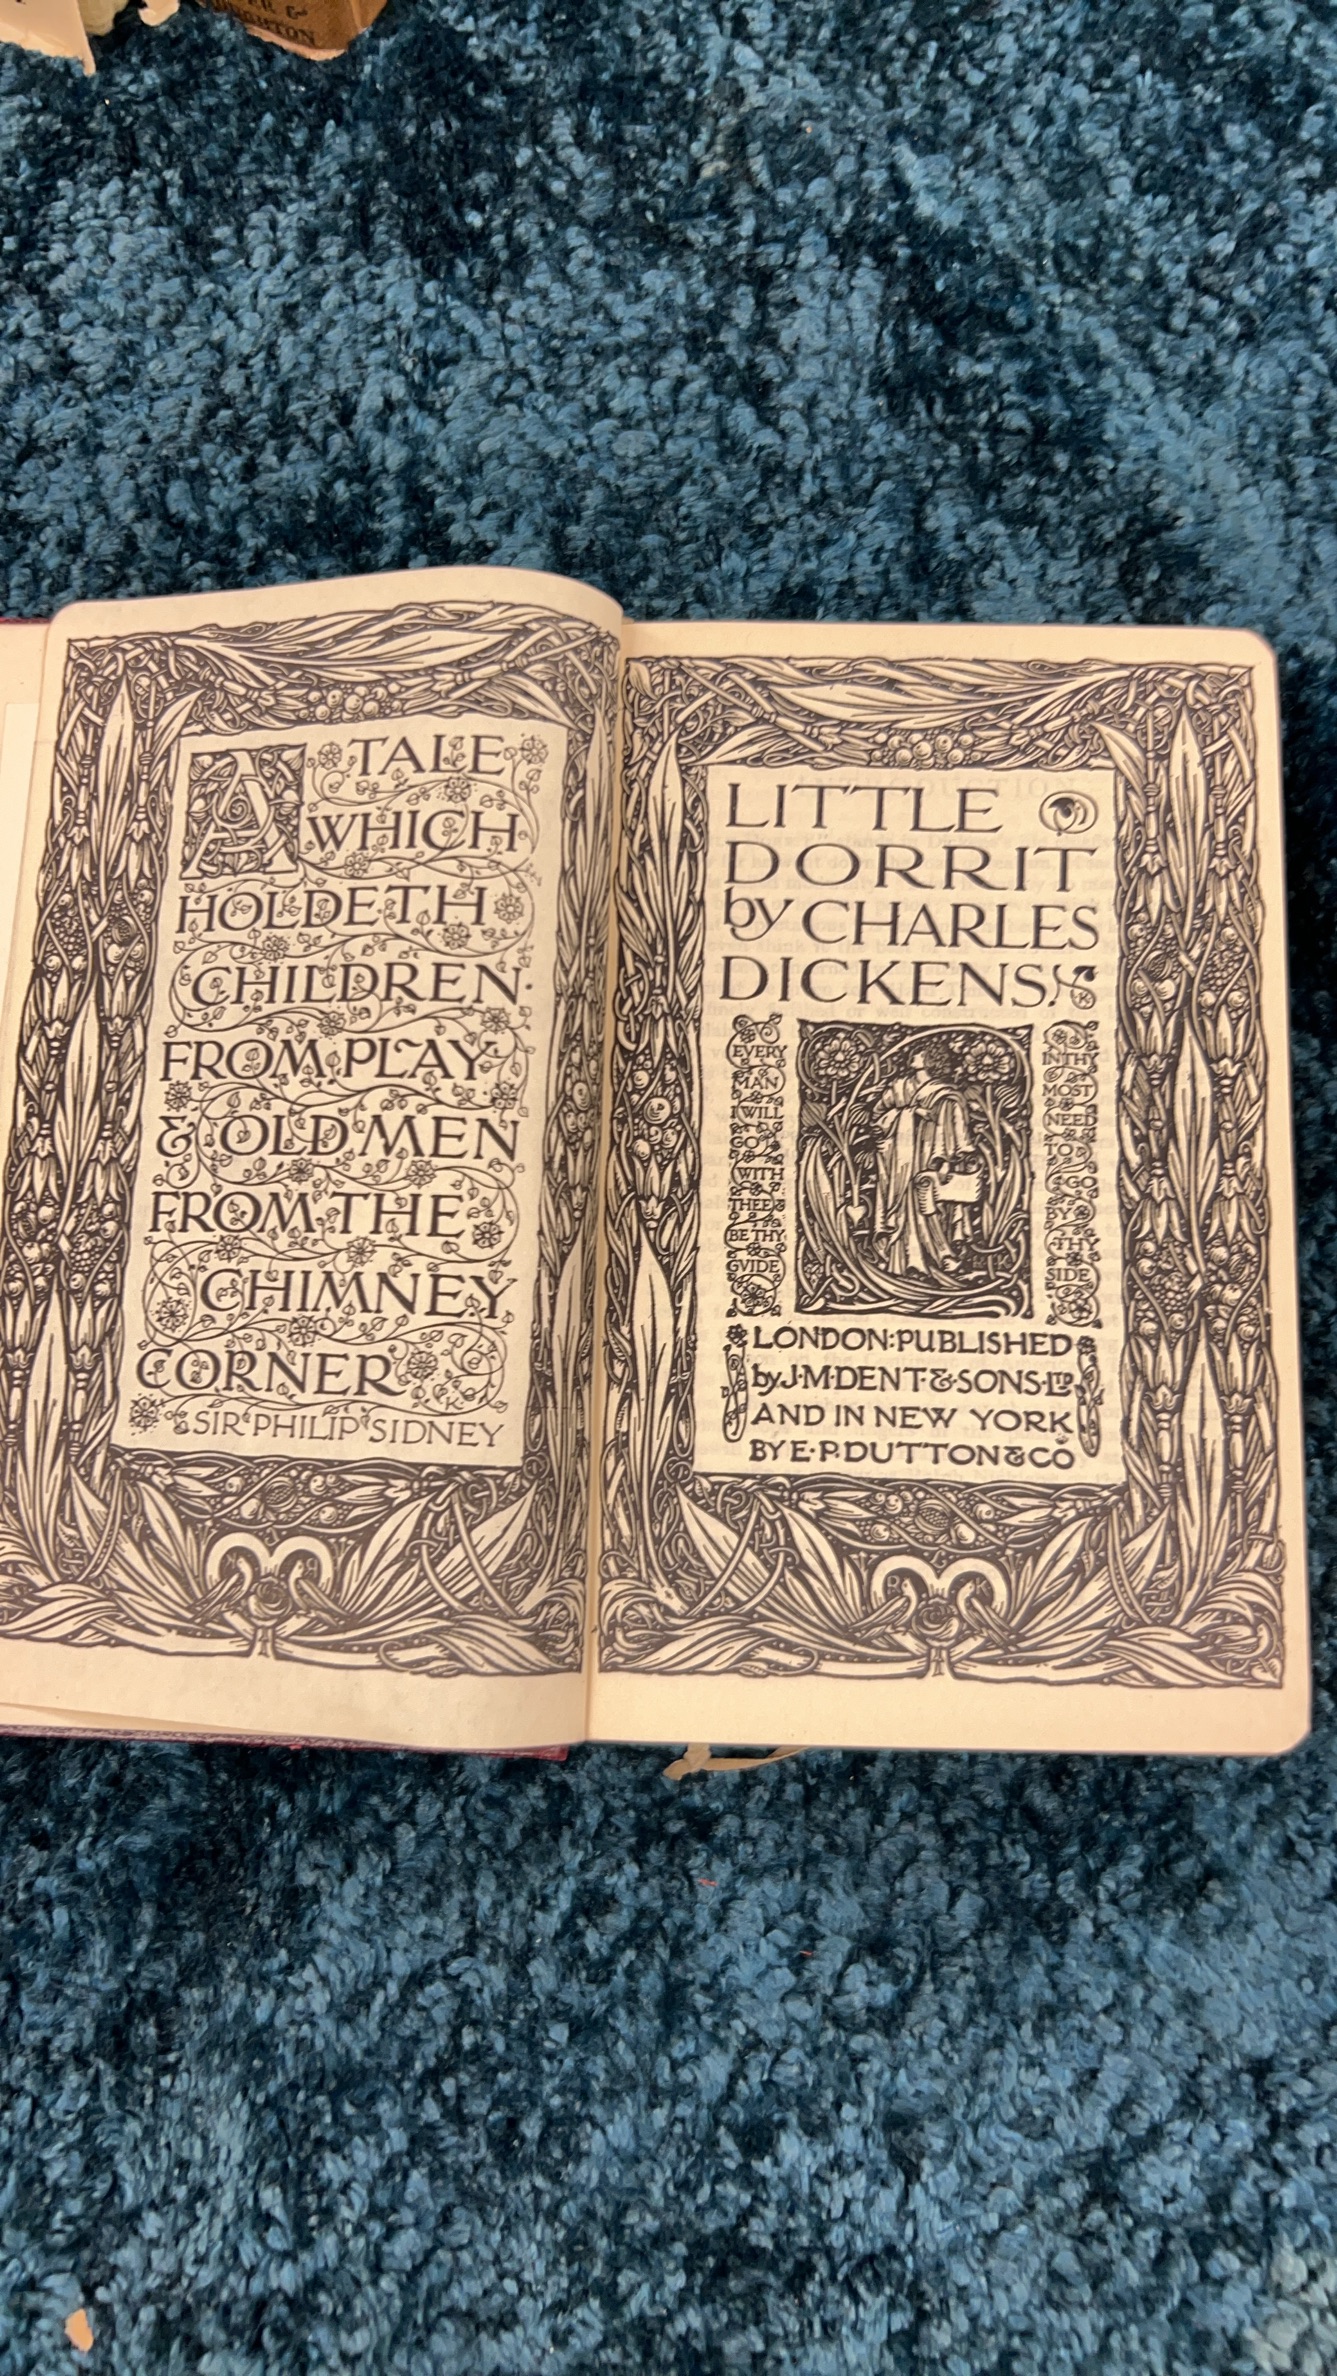 A TALE
WHICH
HOLDETH
CHILDREN
FROM PLAY
& OLD MEN
FROM THE
CHIMNEY
CORNER
SIR PHILIP SIDNEY
LITTLE
DORRIT
by CHARLES
DICKENS
EVERY
MAN
I WILL
GO
WITH
THEE
BE THY
GVIDE
IN THY
MOST
NEED
TO
GO
BY
THY
SIDE
LONDON: PUBLISHED
by J·M·DENT·&·SONS·LTD
AND IN NEW YORK
BY E·P·DUTTON & CO